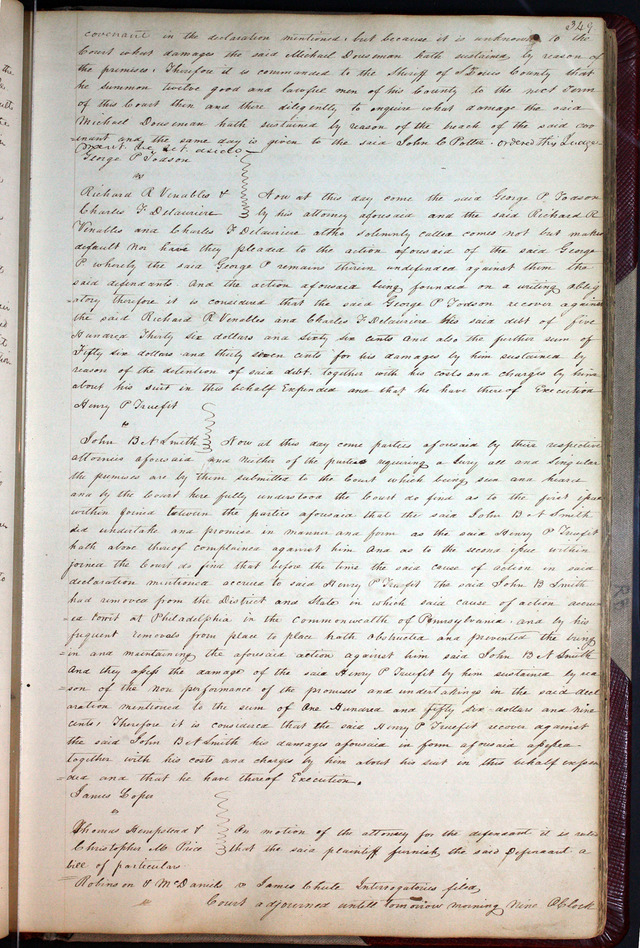 349
covenant in the declaration mentioned, but because it is unknown to the
Court what damages the said Michael Dousman hath sustained by reason of
the premises; Therefore it is commanded to the Sheriff of St Louis County that
he summon twelve good and lawful men of his County to the next Term
of this Court then and there diligently to enquire what damage the said
Michael Dousman hath sustained by reason of the breach of the said cov
=enant and the same day is given to the said John C Potter. ordered this Judge
ment be set aside
George P Todson
vs
Richard R Venables &
Charles F Delauriere
Now at this day come the said George P. Todson
by his attorney aforesaid and the said Richard R
Venables and Charles F Delauriere altho solemnly called comes not but makes
default nor have they pleaded to the action aforesaid of the said George
P. whereby the said George P remains therein undefended against them the
said defendants And the action aforesaid being founded on a writing oblig
=atory therefore it is considered that the said George P Todson recover against
the said Richard R Venables and Charles F Delauriere his said debt of five
Hundred Thirty Six dollars and sixty six cents and also the further sum of
Fifty six dollars and thirty seven cents for his damages by him sustained by
reason of the detention of said debt together with his costs and charges by him
about his suit in this behalf Expended and that he have thereof Execution
Henry P Truefit
vs
John B N Smith
Now at this day come parties aforesaid by their respective
attornies aforesaid and neither of the parties requiring a Jury all and Singular
the premises are by them submitted to the Court which being seen and heard
and by the Court here fully understood the Court do find as to the first issue
within joined between the parties aforesaid that the said John B N Smith
did undertake and promise in manner and form as the said Henry P Truefit
hath above thereof complained against him And as to the second issue within
joined the Court do find that before the time the said cause of action in said
declaration mentioned accrued to said Henry P Truefit the said John B Smith
had removed from the District and State in which said cause of action accru
=ed towit at Philadelphia in the Commonwealth of Pennsylvania and by his
frequent removals from place to place hath obstructed and prevented the bring
=in and maintaining the aforesaid action against him said John B N Smith
And they assess the damage of the said Henry P Truefit by him sustained by rea
=son of the non performance of the promises and undertakings in the said decl
=aration mentioned to the sum of One Hundred and fifty six dollars and nine
cents; Therefore it is considered that the said Henry P Truefit recover against
the said John B N Smith his damages aforesaid in form aforesaid assessed
together with his costs and charges by him about his suit in this behalf expen
=ded and that he have thereof Execution.
James Loper
vs
Thomas Hempstead &
Christopher M Price
On motion of the attorney for the defendant it is ruled
that the said plaintiff furnish the said Defendant a
bill of particulars
Robinson & McDaniels v James Chule Interrogatories filed
Court adjourned untill tomorrow morning Nine OClock